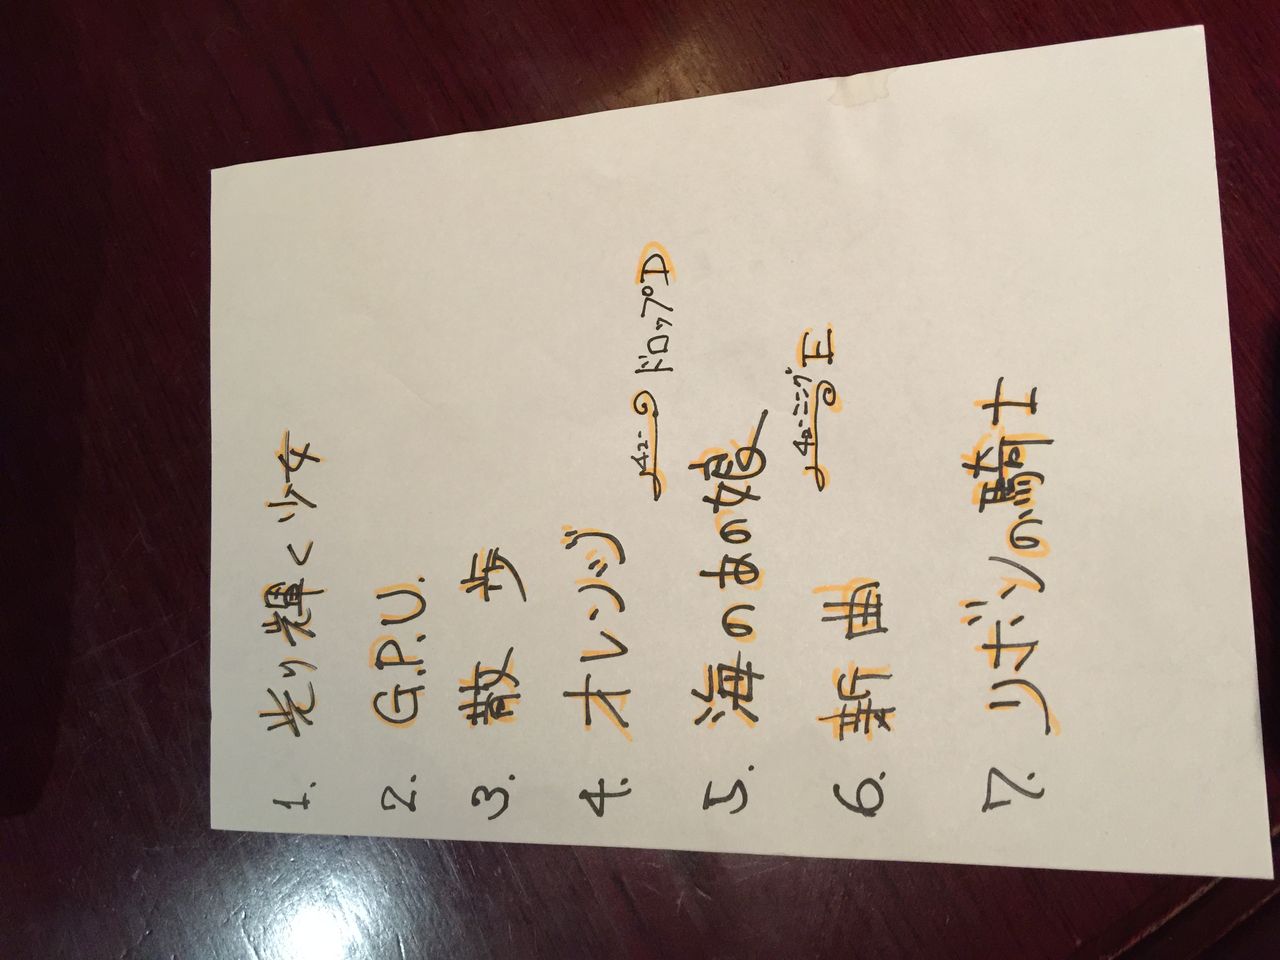 1. 光り輝く少女
2. G.P.U.
3. 散歩
4. オレンジ
チューニング ドロップD
5. 海のあの娘
チューニング E
6. 新曲
7. リボンの騎士